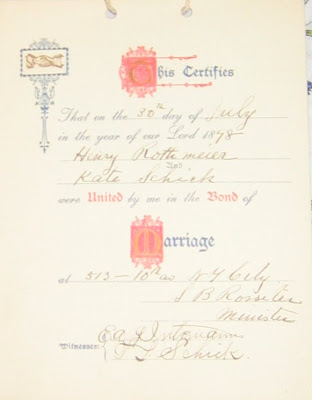 This Certifies
That on the 30th day of July
in the year of our Lord 1878
Henry Rothmeier
And
Kate Schick
were United by me in the Bond of
Marriage
at 313-10th av N Y City
S B Rossiter
Minister
Witnesses: E A
Schick.